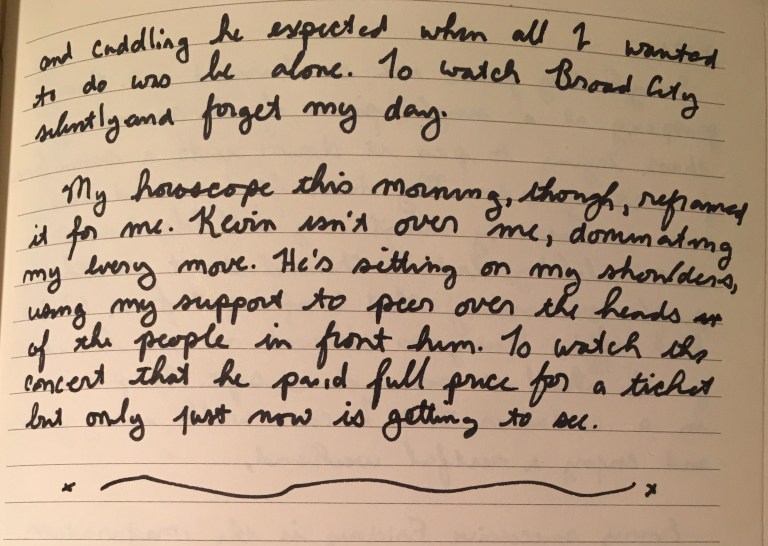 and cuddling he expected when all I wanted
to do was be alone. To watch Broad City
silently and forget my day.
My horoscope this morning, though, reframed
it for me. Kevin isn't over me, dominating
my every move. He's sitting on my shoulders,
using my support to peer over the heads
of the people in front him. To watch the
concert that he paid full price for a ticket
but only just now is getting to see.